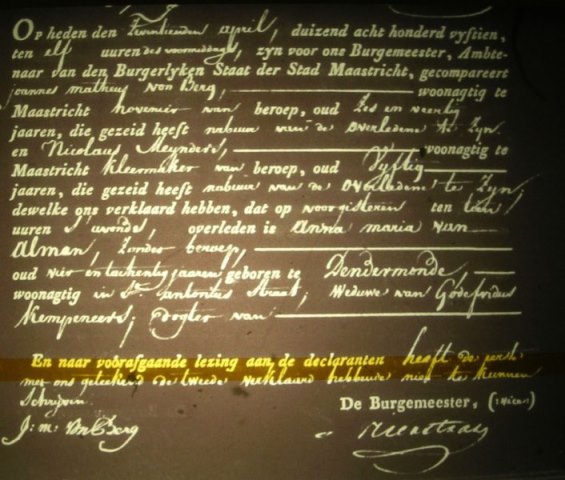 Op heden den Zeventienden april, duizend acht honderd vyftien,
ten elf uuren des voormiddags, zyn voor ons Burgemeester, Ambte-
naar van den Burgerlyken Staat der Stad Maastricht, gecompareert
joannes matheus von Berg, woonagtig te
Maastricht hovenier van beroep, oud Zes en veertig
jaaren, die gezeid heeft nabuur van de overledene te Zyn
en Nicolaus Meynders, woonagtig te
Maastricht kleermaker van beroep, oud Vyftig
jaaren, die gezeid heeft nabuur van de overledene te Zyn,
dewelke ons verklaard hebben, dat op voorgisteren ten tien
uuren s'avonds, overleden is anna maria van
alman, Zonder beroep,
oud vier en tachentig jaaren geboren te Dendermonde,
woonagtig in St. antonius straat, Weduwe van Godefridus
Kempeneers, dogter van
En naar voorafgaande lezing aan de declaranten heeft de eerste
met ons geteekend de tweede verklaard hebbende niet te kunnen
Schryven
De Burgemeester,
J: m: von Berg